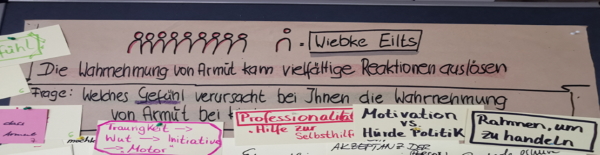 Wiebke Eilts
fühl!
Die Wahrnehmung von Armut kann vielfältige Reaktionen auslösen
Frage: Welches Gefühl verursacht bei Ihnen die Wahrnehmung
von Armut bei
Traurigkeit →
Wut → Initiative
→ Motor
Professionalität
- Hilfe zur
Selbsthilfe
Motivation
vs.
Hürde Politik
Rahmen, um
zu handeln
AKZEPTANZ DER